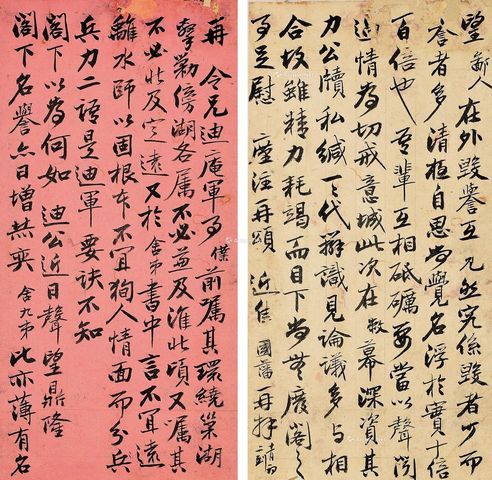 再 令兄迪庵軍事僕前囑其環繞巢湖
擎勦傍湖各屬不必並及淮北頃又囑其
不必北及定遠又於舍弟書中言不宜遠
離水師以固根本不宜狥人情面而分兵
兵力二語是迪軍要訣不知
閣下以為何如 迪公近日聲望鼎隆
閣下名譽亦日增無異 舍九弟比亦薄有名
望鄙人在外毀譽互見然究係毀者少而
譽者多清夜自思尚覺名浮於實十倍
百倍也吾輩互相砥礪要當以聲聞
過情為切戒意城此次在敝幕深資其
力公牘私緘一一代辦識見論議多與相
合故雖精力耗竭而目下尚無廢閣之
事足慰 廑注再頌 近佳 國藩再拜